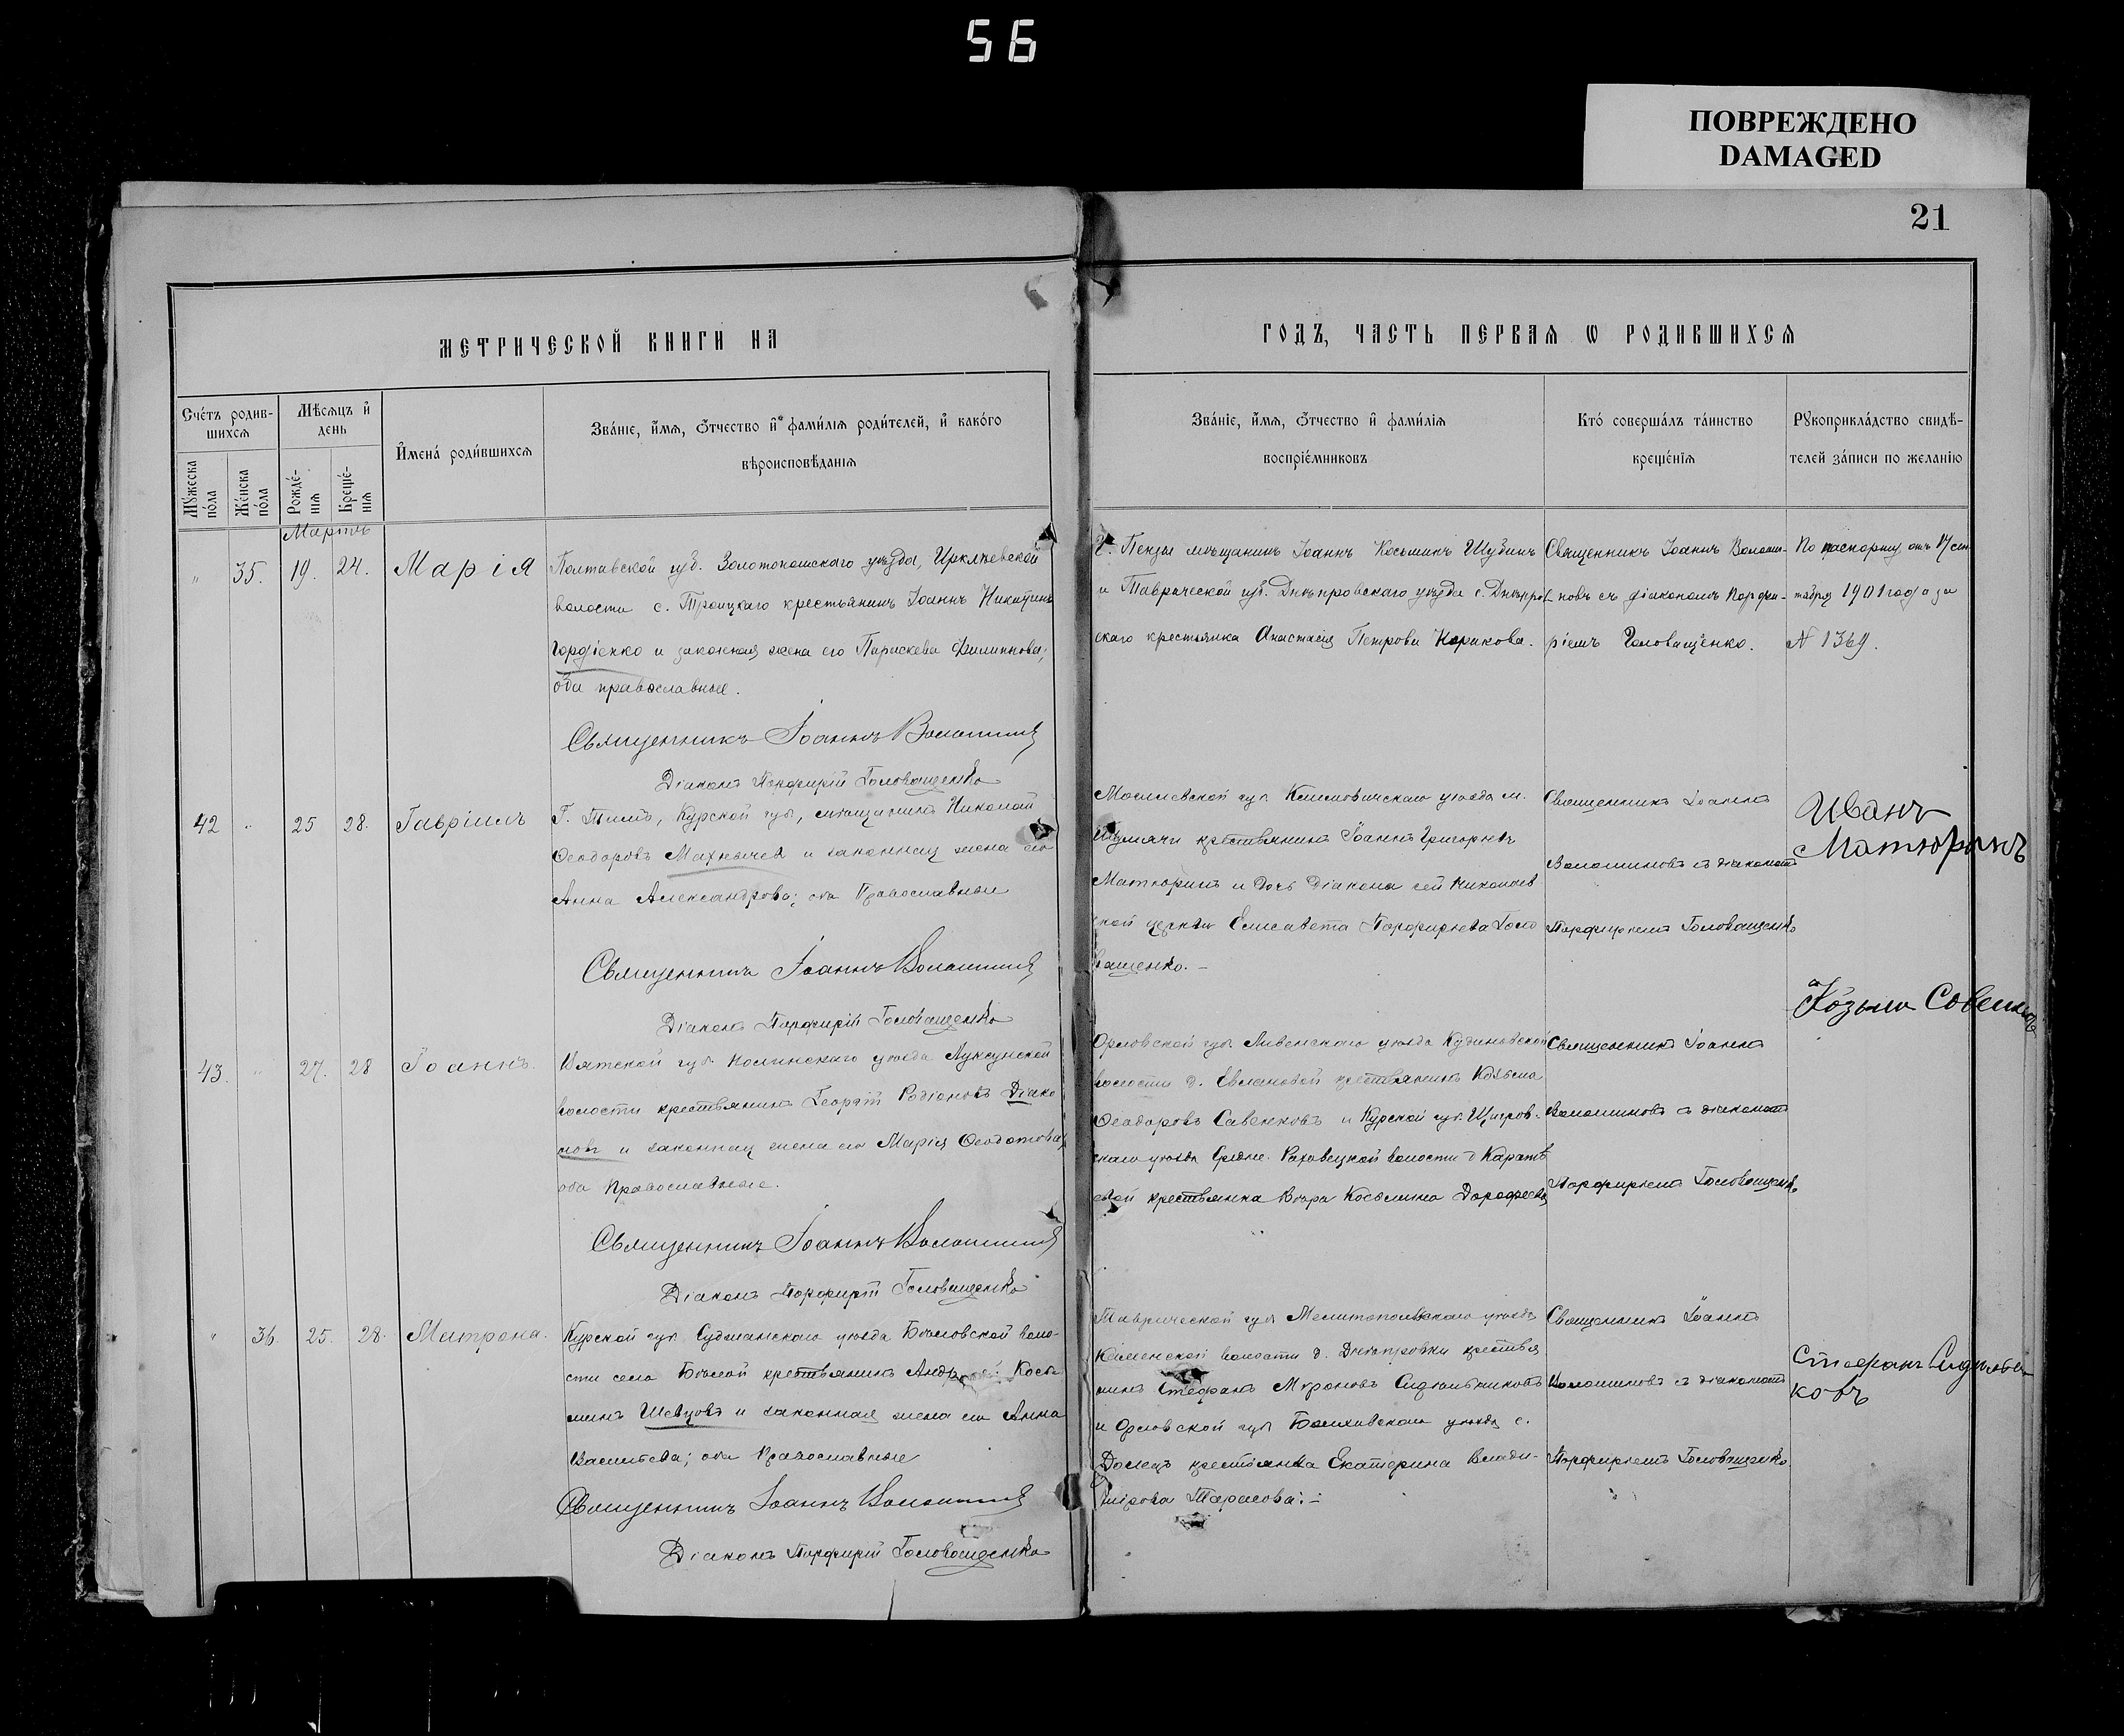 56
ПОВРЕЖДЕНО
DAMAGED
21
МЕТРИЧЕСКОЙ КНИГИ НА
ГОДЪ, ЧАСТЬ ПЕРВАЯ Ѡ РОДИВШИХСЯ
Сче́тъ родив-
шихся
Мѣсяцъ и҆
день
И҆мена̀ роди́вшихся
Зва́нїе, и҆́мя, ѻ҆́тчество и҆ фами́лїя роди́телей, и҆ како́го
вѣроисповѣ́данїя
Мꙋ́жеска
по́ла
Же́нска
по́ла
Рожде́-
нїя
Креще́-
нїя
Зва́нїе, и҆́мя, ѻ҆́тчество и҆ фами́лїя
воспрїе́мниковъ
Кто̀ соверша́лъ та́инство
креще́нїя
Рꙋкоприкла́дство свидѣ́-
телей за́писи по жела́нїю
Мартъ
" 35. 19. 24. Марія
Полтавской губ. Золотоношскаго уѣзда, Ирклѣевской
волости с. Троицкаго крестьянинъ Іоаннъ Никитинъ
Гордіенко и законная жена его Параскева Филиппова;
оба православные.
Священникъ Іоаннъ Волошиновъ
Діаконъ Порфирій Головащенко
Г. Пензы мѣщанинъ Іоаннъ Косьминъ Шубинъ
и Таврической губ. Днѣпровскаго уѣзда с. Днѣпров-
скаго крестьянка Анастасія Петрова Корикова.
Священникъ Іоаннъ Волоши-
новъ съ діакономъ Порфи-
ріемъ Головащенко.
По паспорту отъ 17 сен
тября 1901 года за
№ 1369.
42 " 25 28. Гавріилъ
Г. Тимъ, Курской губ, мѣщанинъ Николай
Ѳеодоровъ Махнычев и законная жена его
Анна Александрова; оба Православные
Священникъ Іоаннъ Волошиновъ
Діаконъ Порфирій Головащенко
Могилевской губ. Климовичскаго уѣзда м.
Шумячи крестьянинъ Іоаннъ Григорьевъ
Матюринъ и дочь діакона сей Николаев
ской церкви Елисавета Порфирьева Голо
ващенко. –
Священникъ Іоаннъ
Волошиновъ съ діакономъ
Порфиріемъ Головащенко
Иванъ
Матюринъ
43. " 27. 28 Іоаннъ.
Вятской губ. Нолинскаго уѣзда Луксунской
волости крестьянинъ Георгій Родіоновъ Діако
новъ и законная жена его Марія Ѳеодотова,
оба Православные.
Священникъ Іоаннъ Волошиновъ
Діаконъ Порфирій Головащенко
Орловской губ Ливенскаго уѣзда Кудиновской
волости д. Евлановой крестьянинъ Козьма
Ѳеодоровъ Савенковъ и Курской губ. Щигров-
скаго уѣзда Средне. Роховецкой волости д Каратѣ
евой крестьянка Вѣра Косьмина Дорофеева
Священникъ Іоаннъ
Волошиновъ съ діакономъ
Порфиріемъ Головащенко.
Козьма Совенковъ
" 36. 25. 28. Матрона.
Курской губ. Суджанскаго уѣзда Бѣловской воло-
сти села Бѣлой крестьянинъ Андрей Косьм
минъ Шевцовъ и законная жена его Анна
Васильева; оба Православные
Священникъ Іоаннъ Волошиновъ
Діаконъ Порфирій Головащенко
Таврической губ Мелитопольскаго уѣзда
Каменской волости д. Днѣпровки крестья
нинъ Стефанъ Мѵроновъ Сидѣльниковъ
и Орловской губ Болховскаго уѣзда с.
Долецъ крестьянка Екатерина Влади-
мірова Тарасова: –
Священникъ Іоаннъ
Волошиновъ съ діакономъ
Порфиріемъ Головащенко
Стефанъ Сидѣльни
ковъ